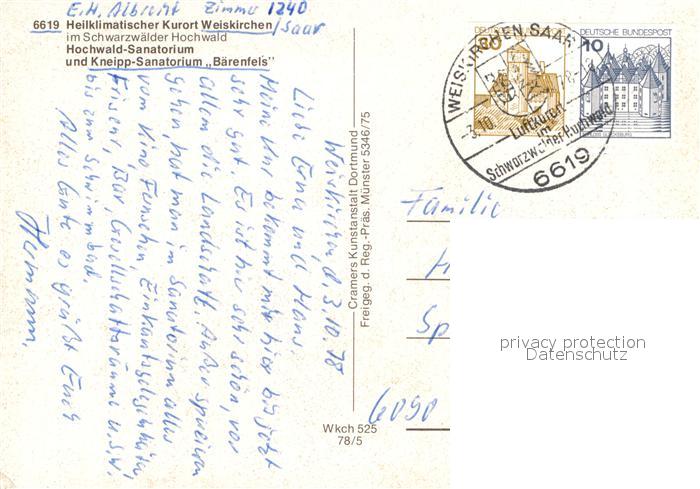 E.H. Albrecht Zimmer 1240
6619 Heilklimatischer Kurort Weiskirchen /Saar
im Schwarzwälder Hochwald
Hochwald-Sanatorium
und Kneipp-Sanatorium „Bärenfels"
Weiskirchen, d. 3.10.78
Liebe Erna und Hans.
Meine Kur bekommt mir hier bis jetzt
sehr gut. Es ist hier sehr schön, vor
allem die Landschaft. Außer spazieren
gehen, hat man im Sanatorium alles
vom Kino, Fernsehen, Einkaufsgelegenheiten,
Friseur, Bar, Gesellschaftsräume u.s.w.
bis zum Schwimmbad.
Alles Gute es grüßt Euch
Hermann.
Cramers Kunstanstalt Dortmund
Freigeg. d. Reg.-Präs. Münster 5346/75
Wkch 525
78/5
DEUTSCHE BUNDESPOST
10
SCHLOSS GLÜCKSBURG
WEISKIRCHEN, SAAR
-3.10.
Luftkurort
im
Schwarzwälder Hochwald
6619
Familie
H
Sp
6090
privacy protection
Datenschutz